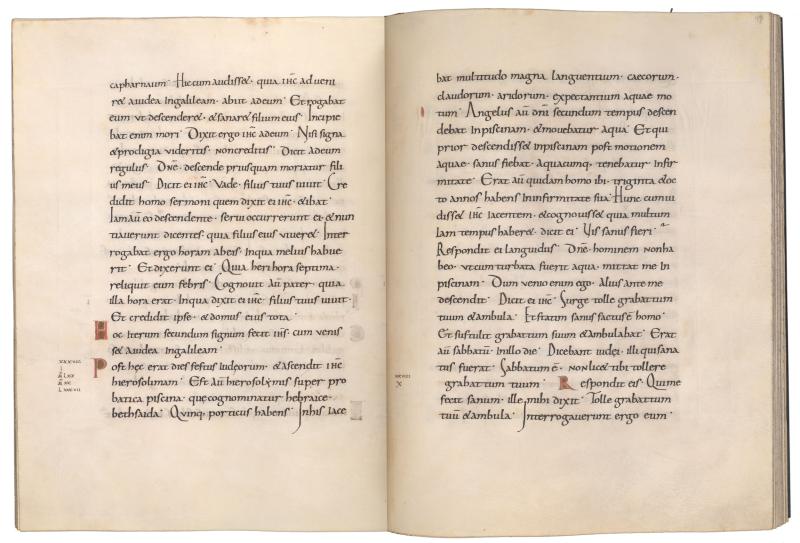 capharnaum · Hic cum audisset · quia ihc adveni
ret a iudea in galileam · abiit ad eum · Et rogabat
eum ut descenderet · & sanaret filium eius · Incipie
bat enim mori · Dixit ergo ihc ad eum · Nisi signa
& prodigia videritis · non creditis · Dicit ad eum
regulus · Dne · descende priusquam moriatur fili
us meus · Dicit ei ihc · Vade · filius tuus vivit · Cre
didit homo sermoni quem dixit ei ihc · & ibat ·
Iam aut eo descendente · servi occurrerunt ei · & nun
tiaverunt dicentes · quia filius eius viveret · Inter
rogabat ergo horam ab eis · in qua melius habue
rit · Et dixerunt ei · Quia heri hora septima ·
reliquit eum febris · Cognovit au pater · quia
illa hora erat · in qua dixit ei ihc · filius tuus vivit ·
Et credidit ipse · & domus eius tota ·
Hoc iterum secundum signum fecit ihs · cum venis
set a iudea in galileam ·
Post hec erat dies festus iudeorum · & ascendit ihc
hierosolimam · Est au hierosolymis super pro
batica piscina · que cognominatur hebraice ·
bethsaida · Quinq · porticus habens · In his iace
bat multitudo magna languentium · caecorum ·
claudorum · aridorum · expectantium aquae mo
tum · Angelus au dni secundum tempus descen
debat in piscinam · & movebatur aqua · Et qui
prior descendisset in piscinam post motionem
aquae · sanus fiebat · a quacumq · tenebatur infir
mitate · Erat au quidam homo ibi · triginta & oc
to annos habens in infirmitate sua · Hunc cum vi
disset ihc iacentem · & cognovisset quia multum
iam tempus haberet · dicit ei · Vis sanus fieri ·
Respondit ei languidus · Dne · hominem non ha
beo · ut cum turbata fuerit aqua · mittat me in
piscinam · Dum venio enim ego · alius ante me
descendit · Dicit ei ihc · Surge tolle grabattum
tuum & ambula · Et statim sanus factus e homo ·
Et sustulit grabattum suum & ambulabat · Erat
au sabbatu · in illo die · Dicebant iudei · illi qui sana
tus fuerat · Sabbatum e · non licet tibi tollere
grabattum tuum · Respondit eis · Qui me
fecit sanum · ille mihi dixit · Tolle grabattum
tuu & ambula · Interrogaverunt ergo eum ·